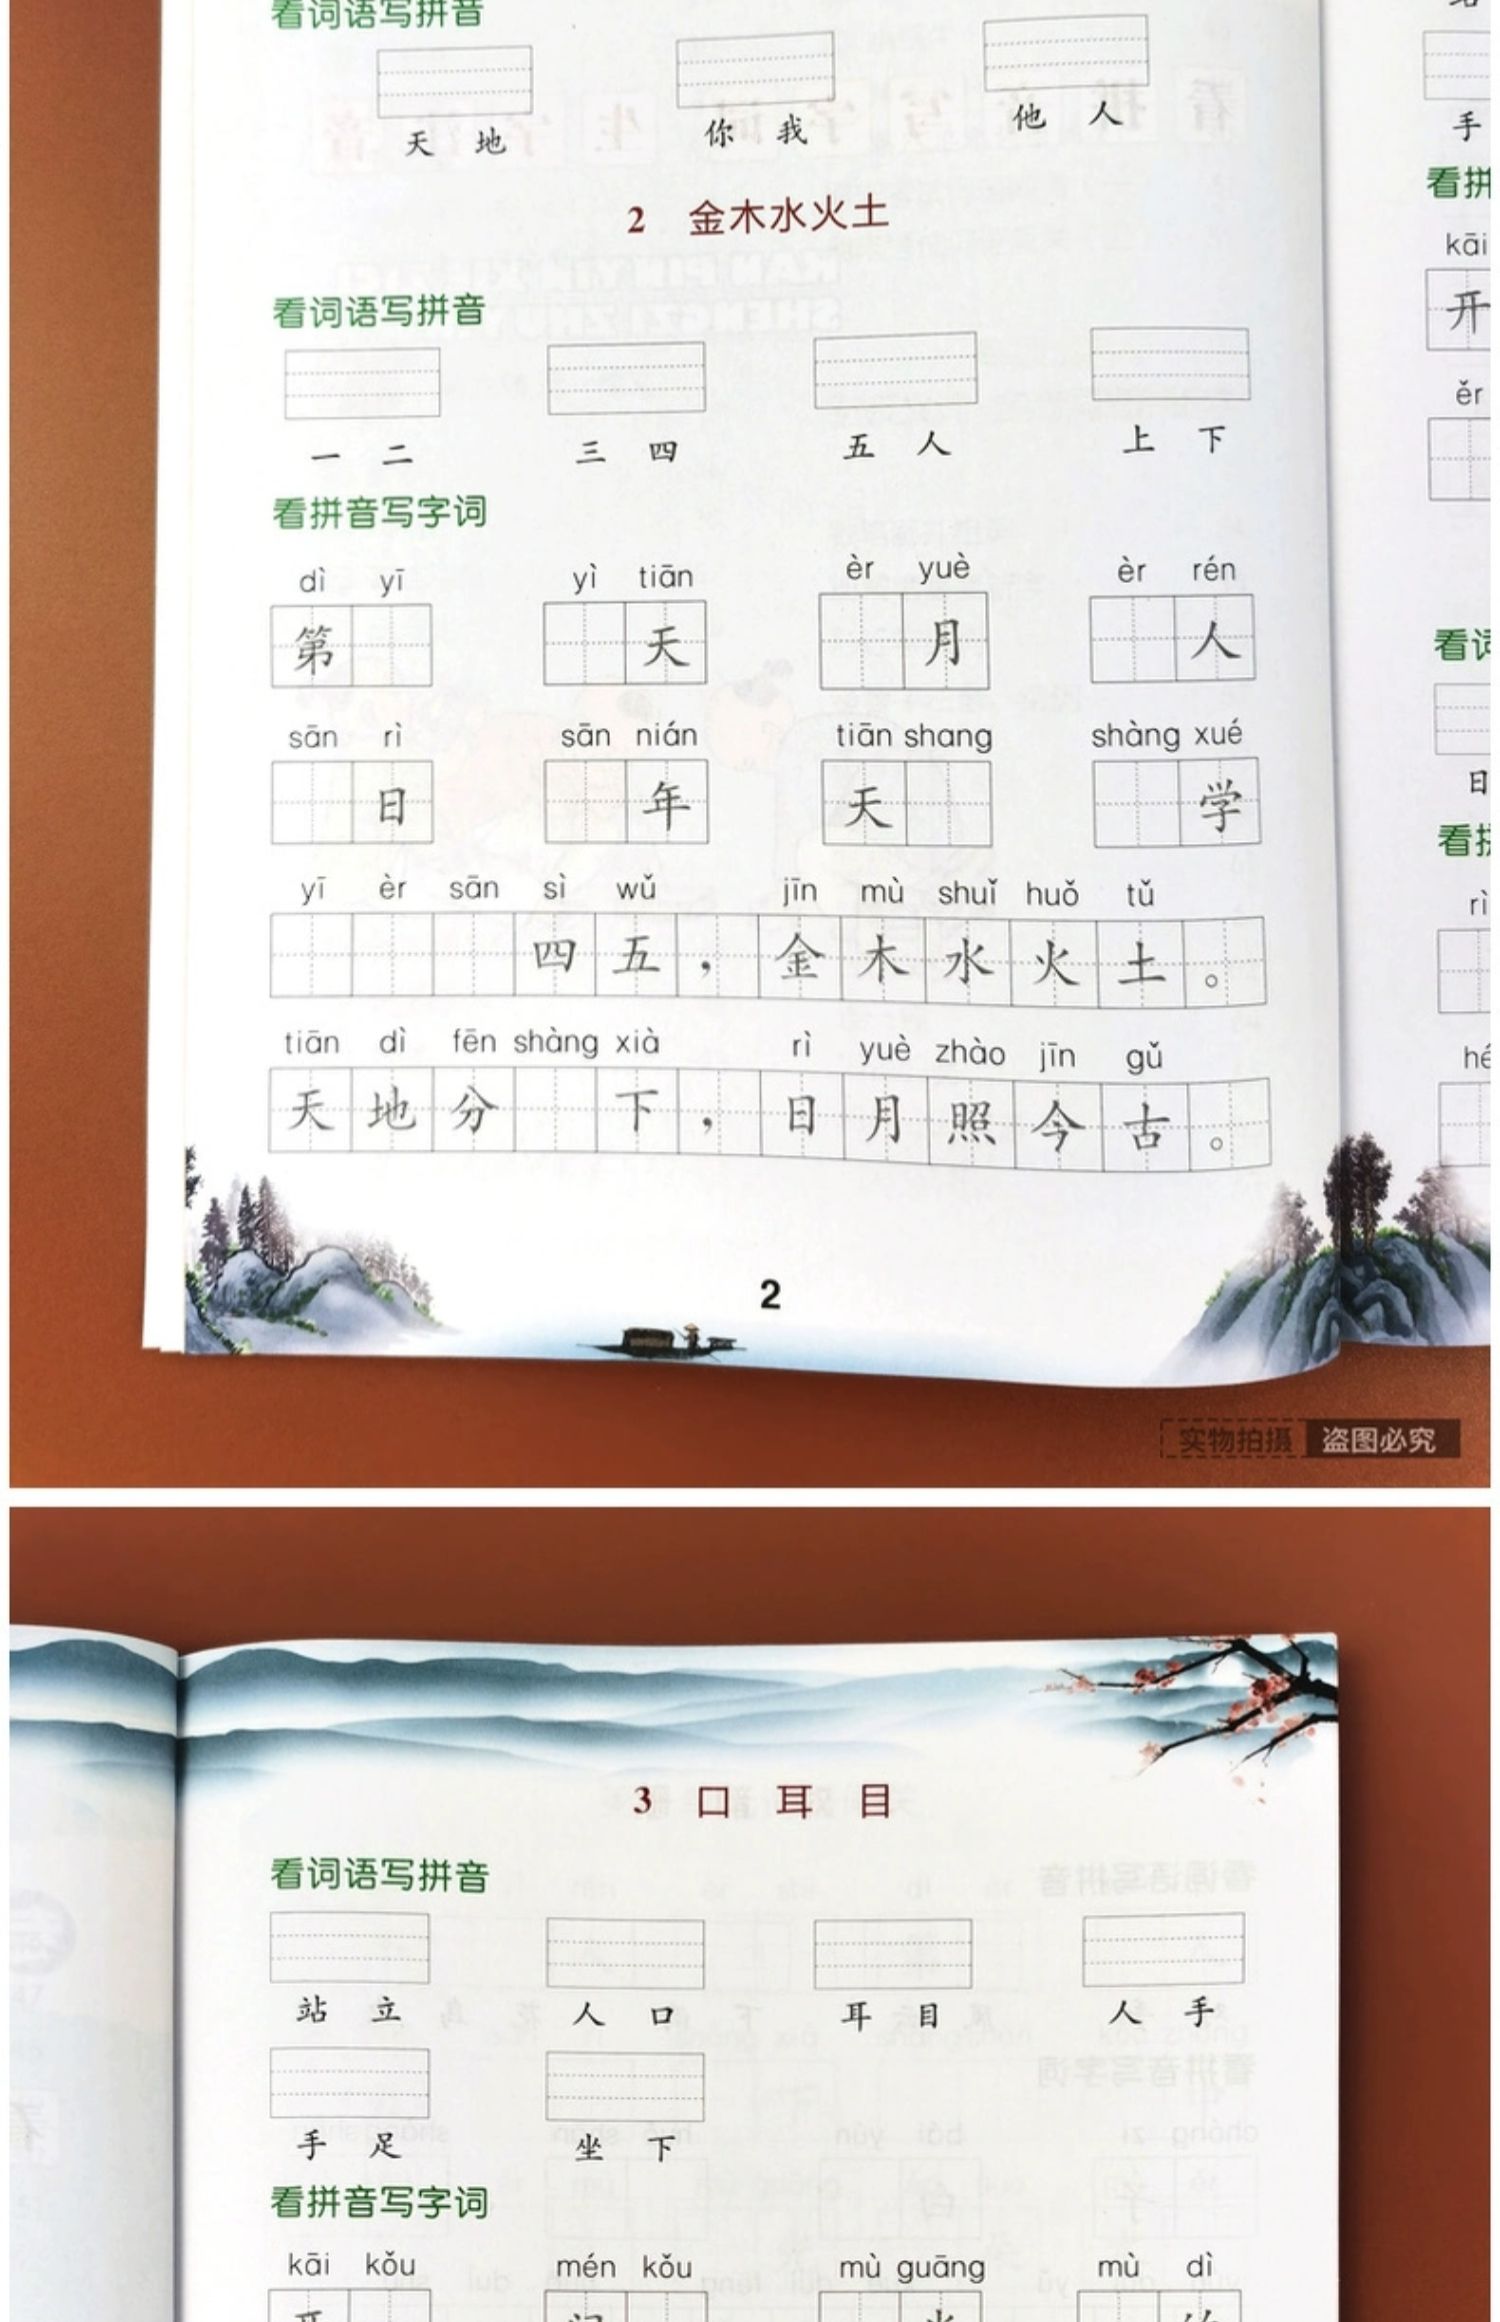 看词语写拼音
天 地 你 我 他 人
2 金木水火土
看词语写拼音
一 二 三 四 五 人 上 下
看拼音写字词
dì yī yì tiān èr yuè èr rén
第 天 月 人
sān rì sān nián tiān shang shàng xué
日 年 天 学
yī èr sān sì wǔ jīn mù shuǐ huǒ tǔ
四 五 , 金 木 水 火 土 。
tiān dì fēn shàng xià rì yuè zhào jīn gǔ
天 地 分 下 , 日 月 照 今 古 。
2
手
看拼
kāi
开
ěr
看词
日
看拼
rì
hé
实物拍摄 盗图必究
3 口 耳 目
看词语写拼音
站 立 人 口 耳 目 人 手
手 足 坐 下
看拼音写字词
kāi kǒu mén kǒu mù guāng mù dì